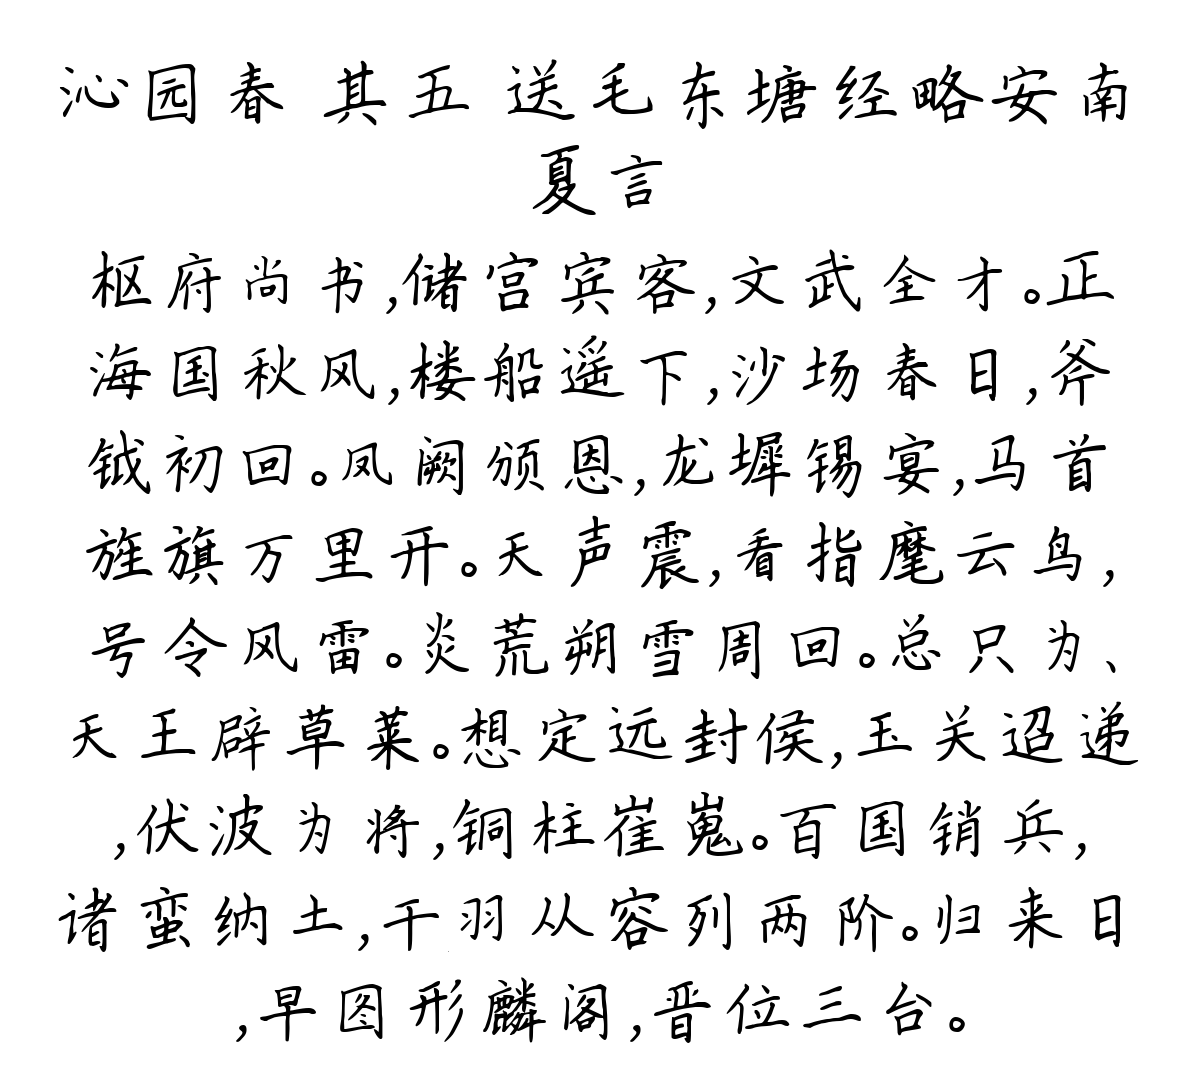 沁园春 其五 送毛东塘经略安南
夏言
枢府尚书,储宫宾客,文武全才。正
海国秋风,楼船遥下,沙场春日,斧
钺初回。凤阙颁恩,龙墀锡宴,马首
旌旗万里开。天声震,看指麾云鸟,
号令风雷。炎荒朔雪周回。总只为、
天王辟草莱。想定远封侯,玉关迢递
,伏波为将,铜柱崔嵬。百国销兵,
诸蛮纳土,干羽从容列两阶。归来日
,早图形麟阁,晋位三台。